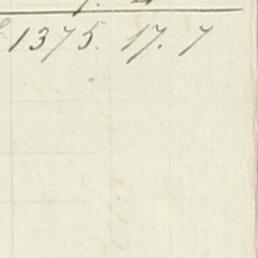 1375. 17. 7